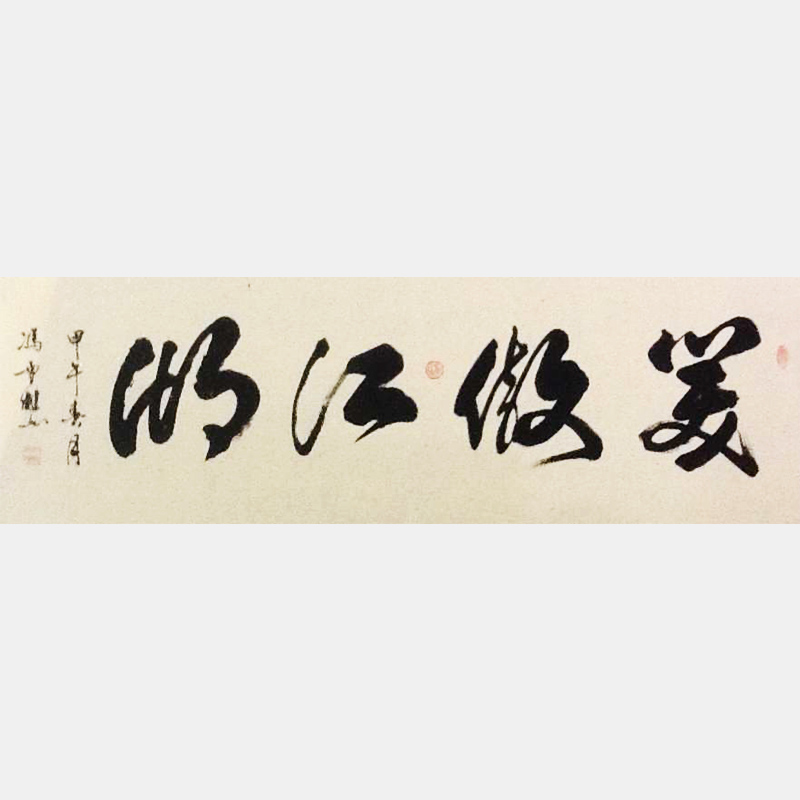 笑傲江湖
甲午春月
馮